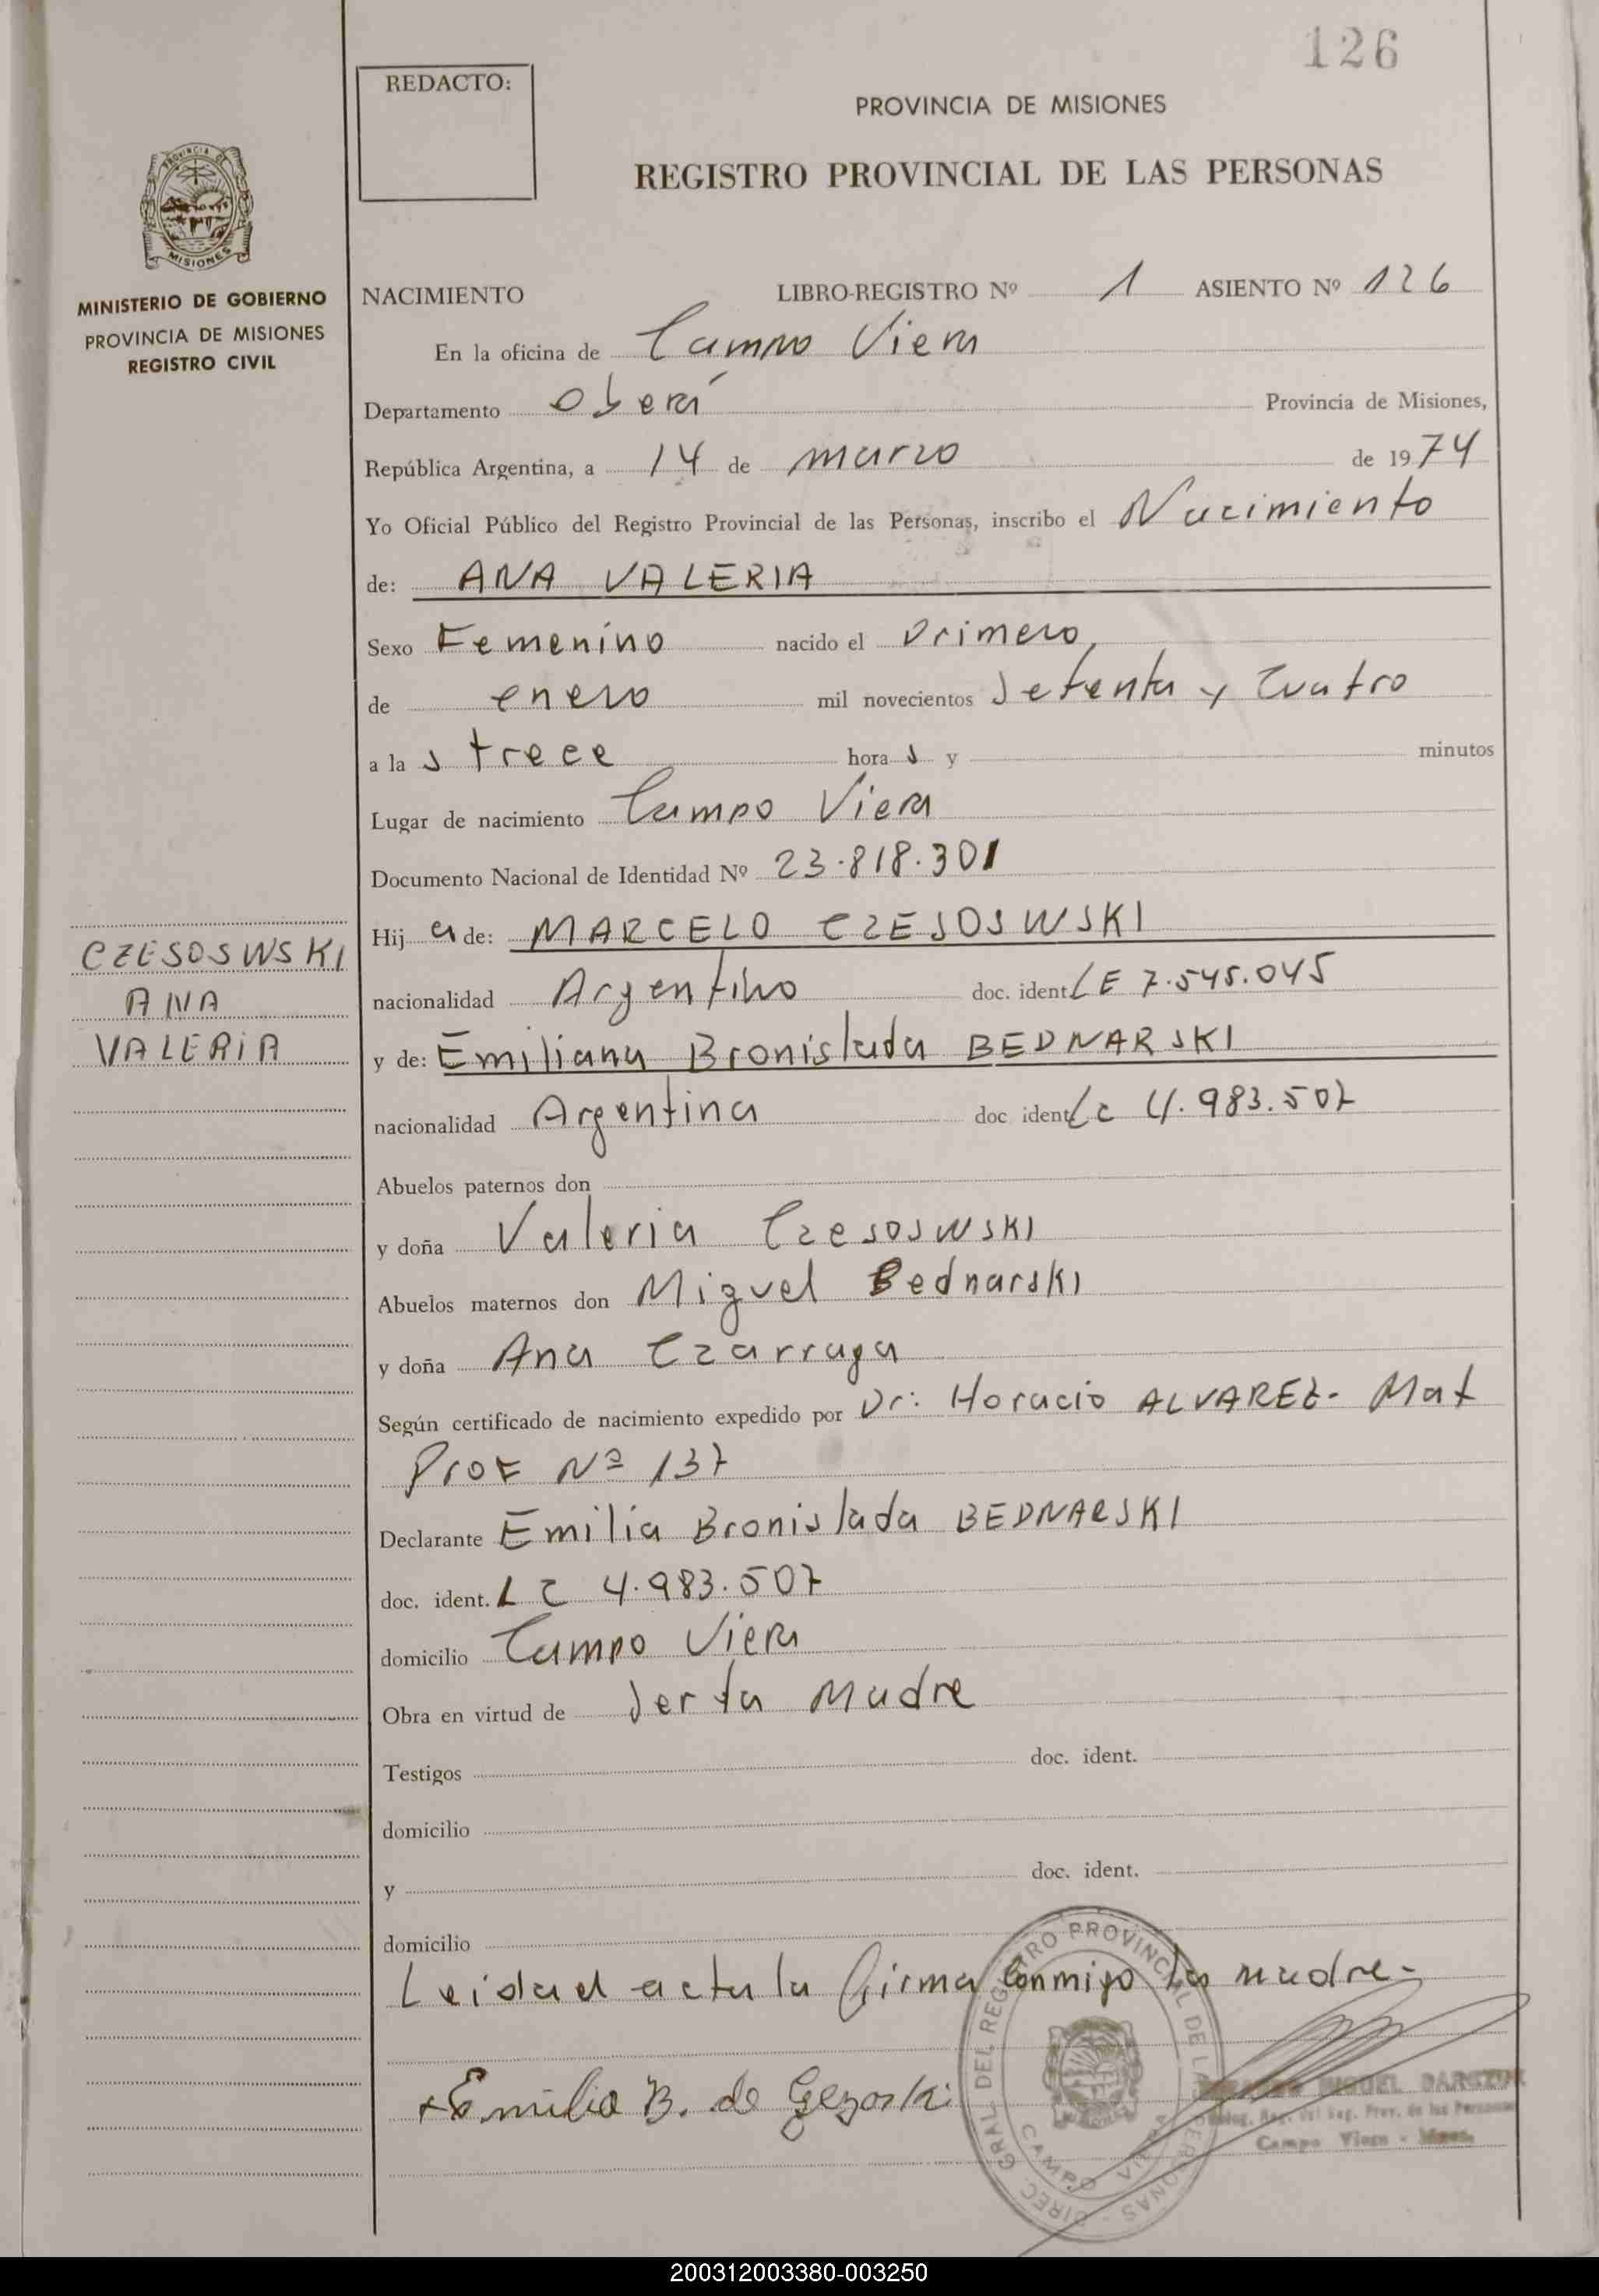 126
REDACTO:
PROVINCIA DE MISIONES
REGISTRO PROVINCIAL DE LAS PERSONAS
PROVINCIA DE
MISIONES
MINISTERIO DE GOBIERNO
PROVINCIA DE MISIONES
REGISTRO CIVIL
NACIMIENTO LIBRO-REGISTRO Nº 1 ASIENTO Nº 126
En la oficina de Campo Viera
Departamento Oberá Provincia de Misiones,
República Argentina, a 14 de marzo de 1974
Yo Oficial Público del Registro Provincial de las Personas, inscribo el Nacimiento
de: ANA VALERIA
Sexo Femenino nacido el Primero
de enero mil novecientos Setenta y Cuatro
a la s trece hora s y minutos
Lugar de nacimiento Campo Viera
Documento Nacional de Identidad Nº 23.818.301
Hij a de: MARCELO CZESOSWSKI
nacionalidad Argentino doc. ident. LE 7.545.045
y de: Emiliana Bronislada BEDNARSKI
nacionalidad Argentina doc ident. LC 4.983.507
Abuelos paternos don
y doña Valeria Czesoswski
Abuelos maternos don Miguel Bednarski
y doña Ana Czarruga
Según certificado de nacimiento expedido por Dr: Horacio ALVAREZ- Mat
Prof Nº 137
Declarante Emilia Bronislada BEDNARSKI
doc. ident. LC 4.983.507
domicilio Campo Viera
Obra en virtud de Ser la Madre
Testigos doc. ident.
domicilio
y doc. ident.
domicilio
Leida el acta la firma conmigo la madre-
Emilia B. de Gezoski
CZESOSWSKI
ANA
VALERIA
DIREC. GRAL. DEL REGISTRO PROVINCIAL DE LAS PERSONAS
CAMPO VIERA
MIGUEL
Reg. Prov. de las Personas
Campo Viera - Mnes.
200312003380-003250